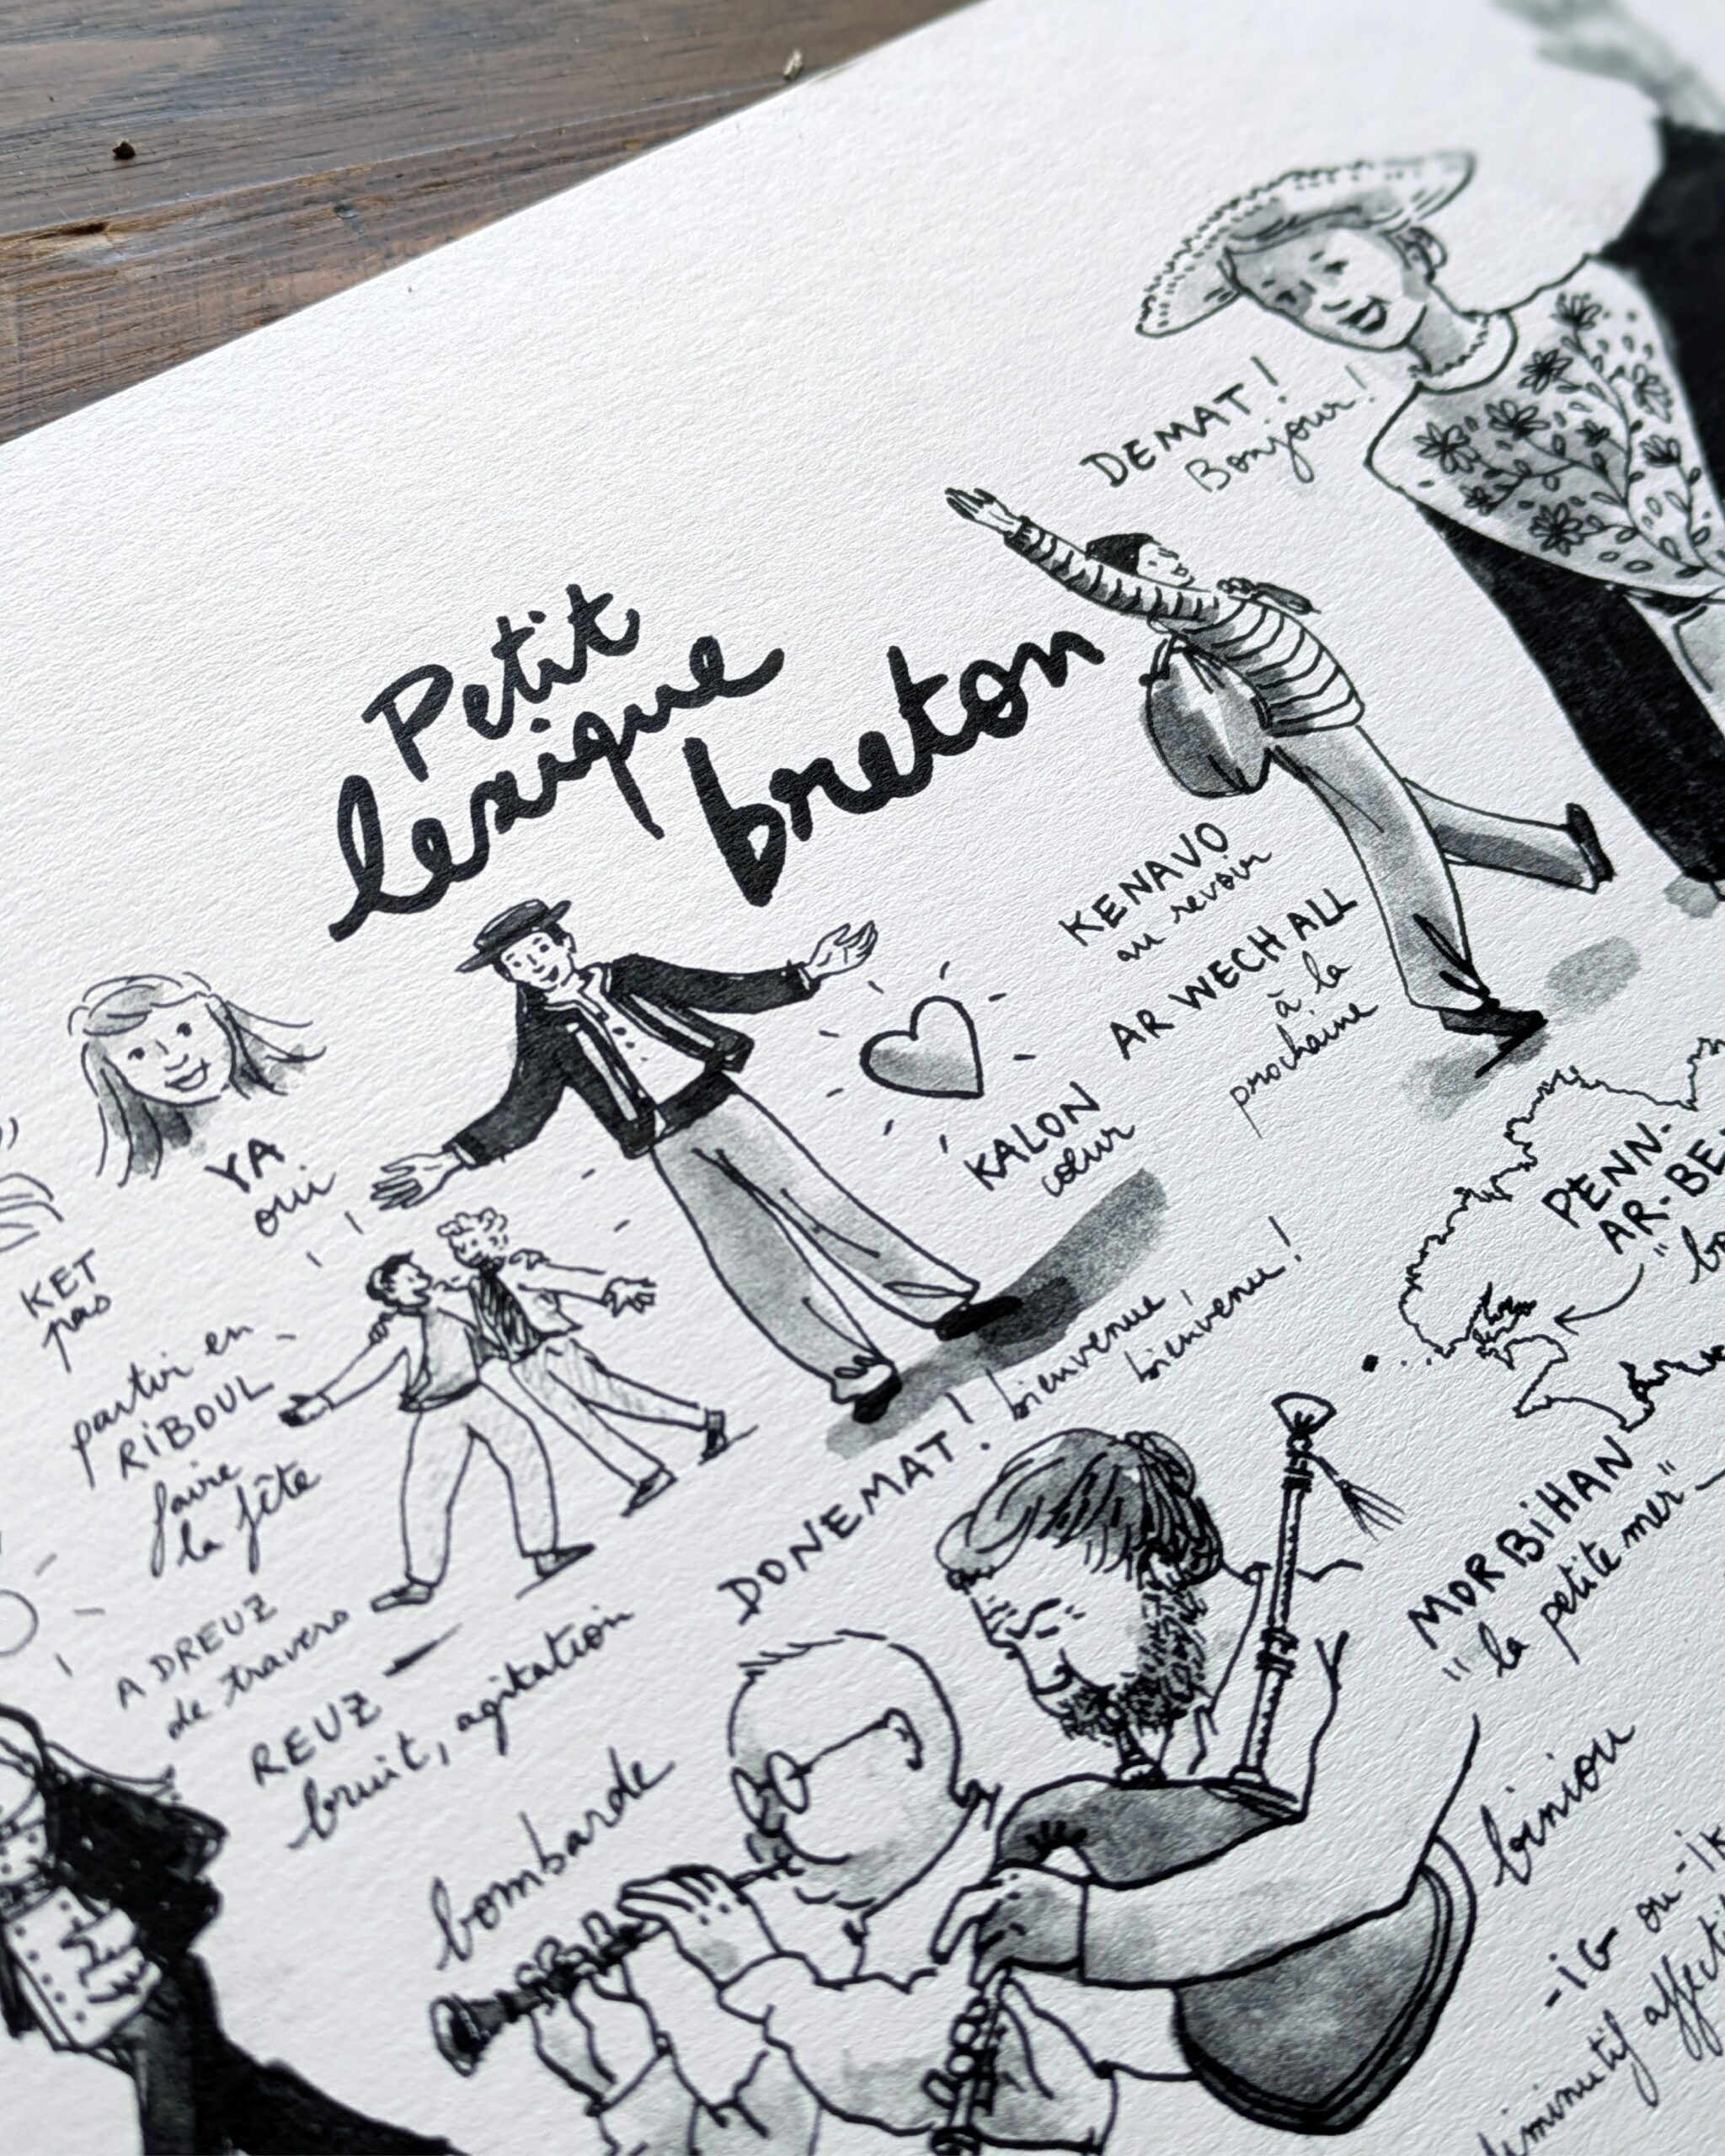 DEMAT!
Bonjour!
Petit
lexique
breton
KENAVO
au revoir
AR WECH ALL
à la
prochaine
KALON
cœur
YA
oui
KET
pas
partir en
RIBOUL
faire
la fête
DONEMAT! bienvenue,
bienvenu!
PENN-
AR-BE
MOR BIHAN
"la petite mer"
A DREUZ
de travers
REUZ
bruit, agitation
bombarde
biniou
-IG ou -IK
diminutif affectif